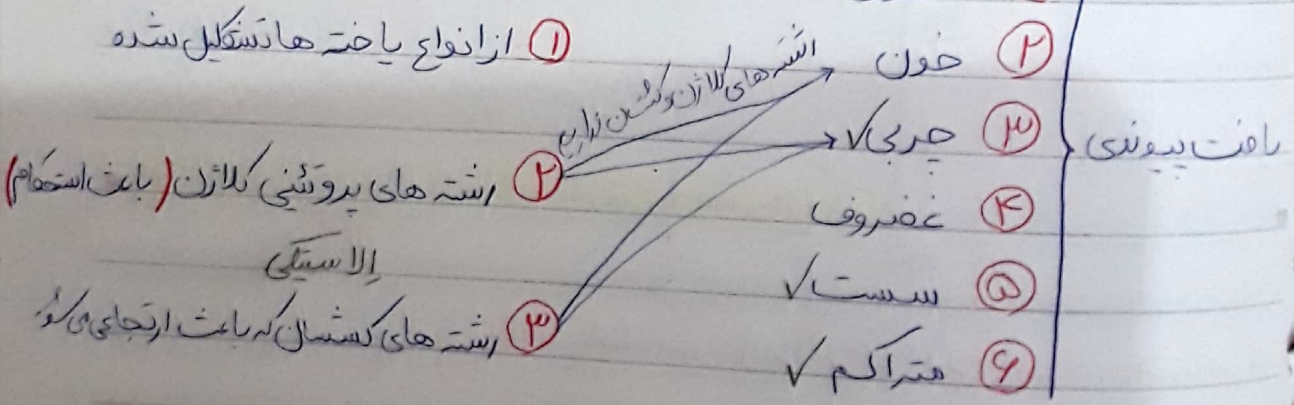 بافت پیوندی
۲ خون
۳ چربی ✓
۴ غضروف
۵ سست ✓
۶ متراکم ✓
۱ از انواع یاخته ها تشکیل شده
رشته های کلاژن و کشسان نداریم
۲ رشته های پروتئینی کلاژن (باعث استحکام)
الاستیکی
۳ رشته های کشسان که باعث ارتجاعی می‌شود